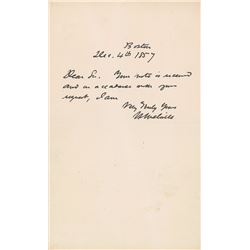 Boston
Dec. 4th 1857
Dear Sir. Your note is received
and in accordance with your
request, I am
Very Truly Yours